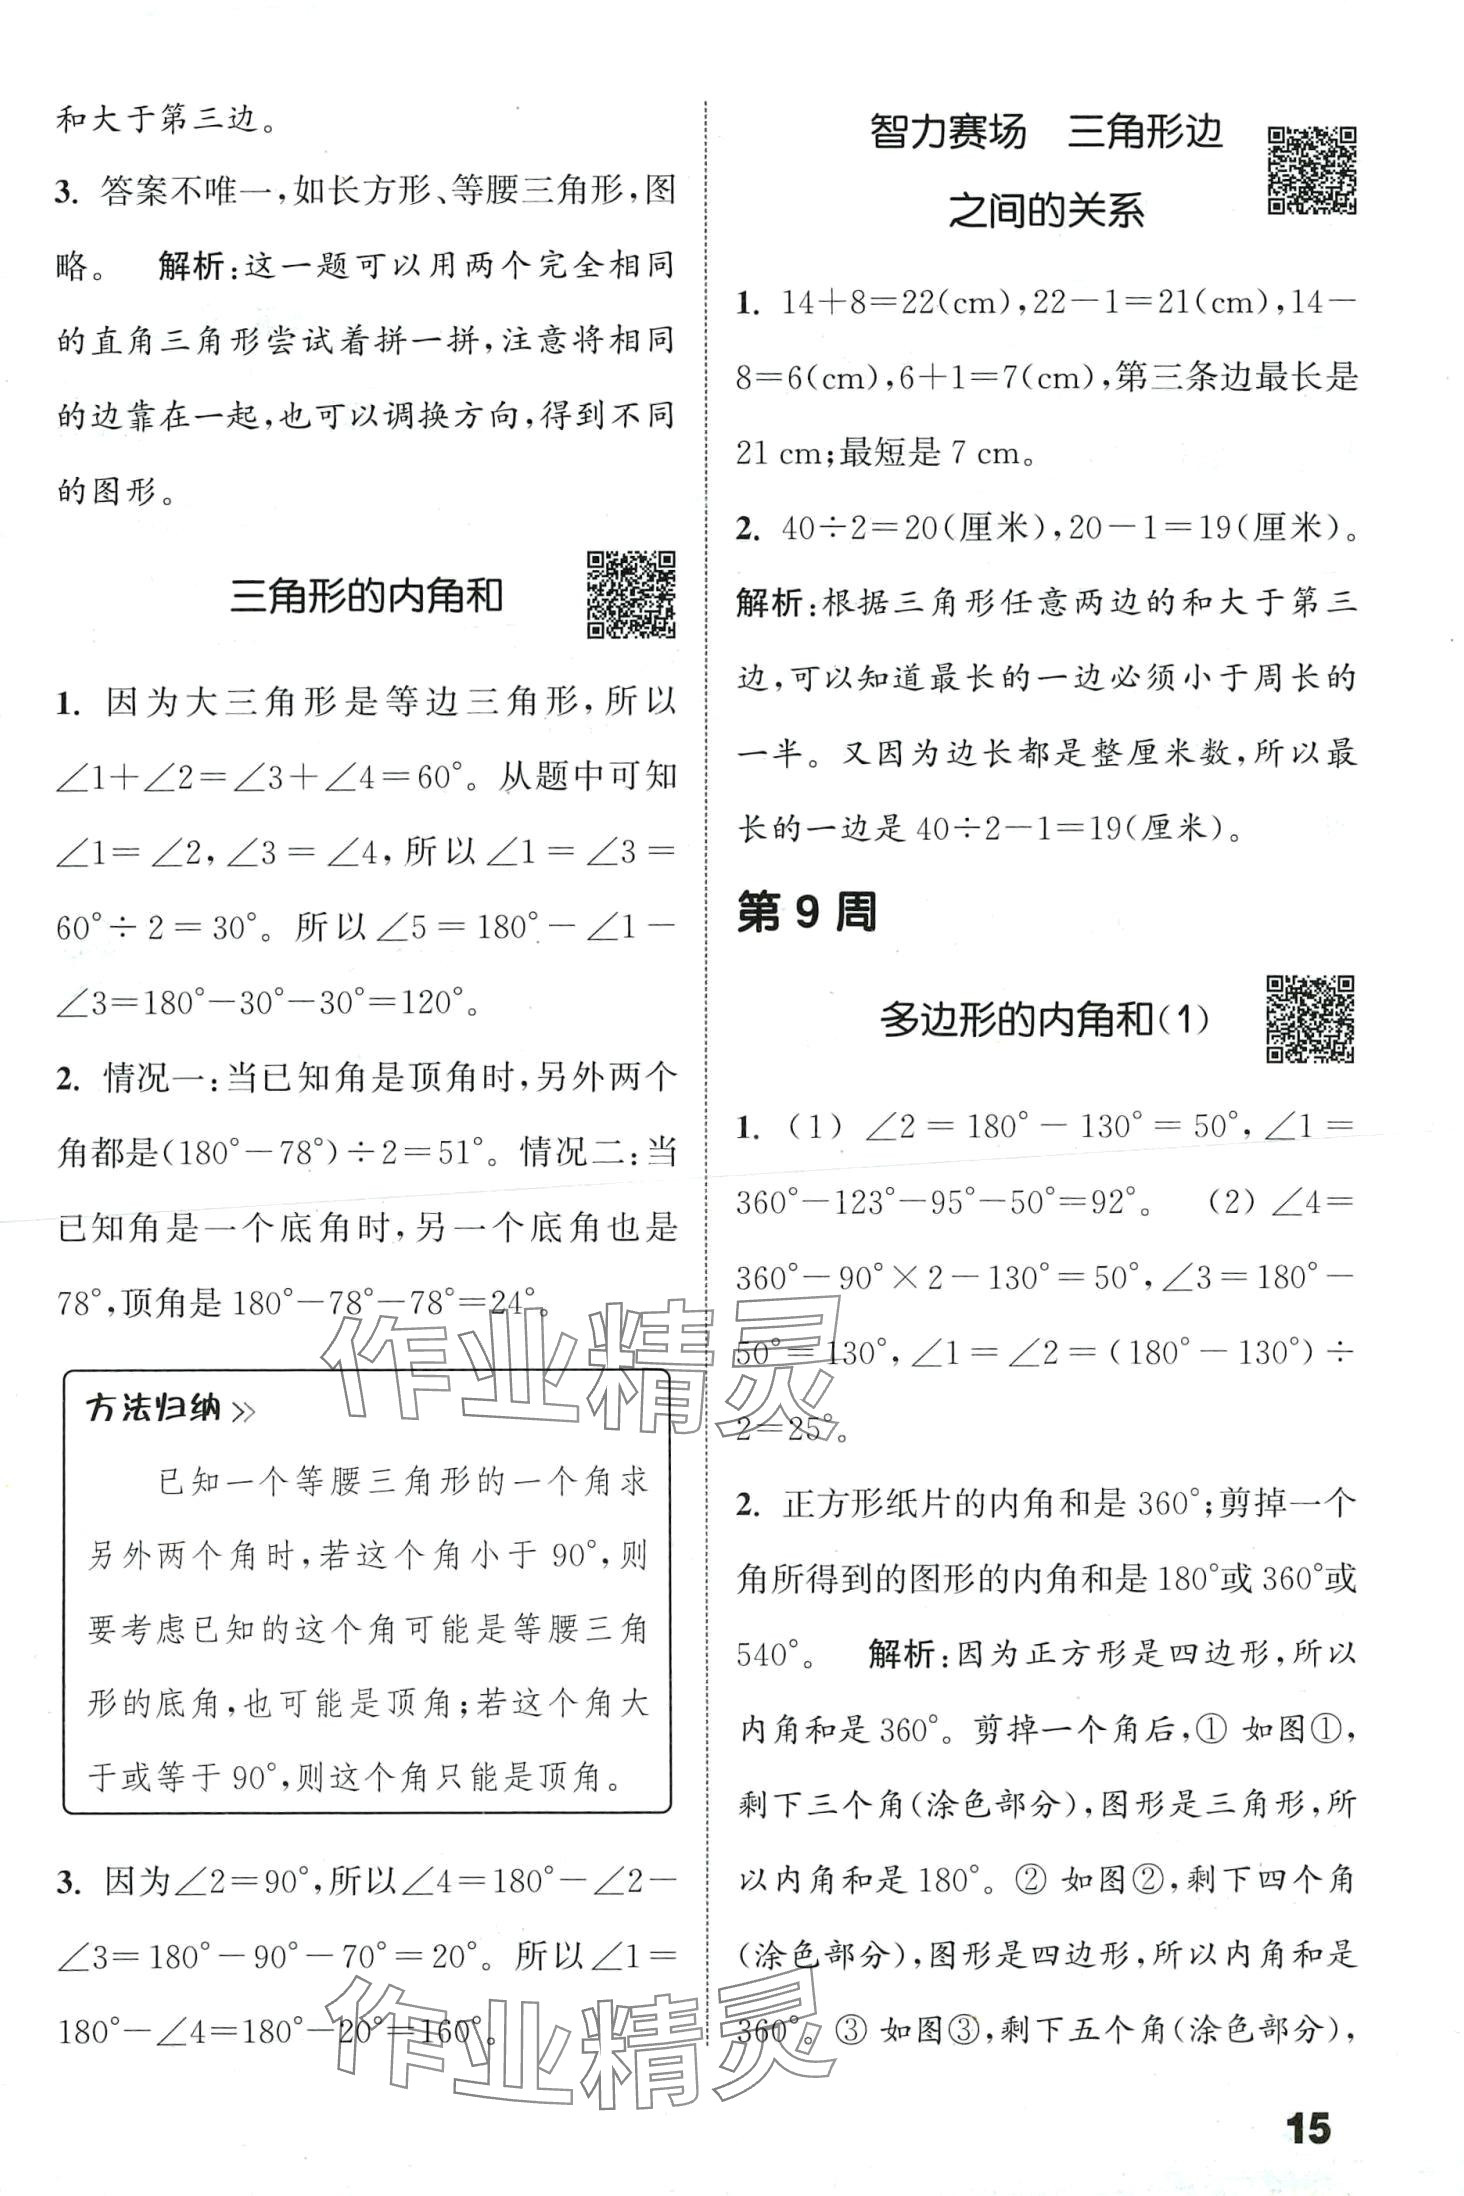 和大于第三边。
3. 答案不唯一,如长方形、等腰三角形,图
略。 解析:这一题可以用两个完全相同
的直角三角形尝试着拼一拼,注意将相同
的边靠在一起,也可以调换方向,得到不同
的图形。
三角形的内角和
1. 因为大三角形是等边三角形,所以
∠1+∠2=∠3+∠4=60°。从题中可知
∠1=∠2,∠3=∠4,所以∠1=∠3=
60°÷2=30°。所以∠5=180°-∠1-
∠3=180°-30°-30°=120°。
2. 情况一:当已知角是顶角时,另外两个
角都是(180°-78°)÷2=51°。情况二:当
已知角是一个底角时,另一个底角也是
78°,顶角是180°-78°-78°=24°。
方法归纳
已知一个等腰三角形的一个角求
另外两个角时,若这个角小于90°,则
要考虑已知的这个角可能是等腰三角
形的底角,也可能是顶角;若这个角大
于或等于90°,则这个角只能是顶角。
3. 因为∠2=90°,所以∠4=180°-∠2-
∠3=180°-90°-70°=20°。所以∠1=
180°-∠4=180°-20°=160°。
智力赛场 三角形边
之间的关系
1. 14+8=22(cm),22-1=21(cm),14-
8=6(cm),6+1=7(cm),第三条边最长是
21 cm;最短是7 cm。
2. 40÷2=20(厘米),20-1=19(厘米)。
解析:根据三角形任意两边的和大于第三
边,可以知道最长的一边必须小于周长的
一半。又因为边长都是整厘米数,所以最
长的一边是40÷2-1=19(厘米)。
第9周
多边形的内角和(1)
1. (1) ∠2=180°-130°=50°,∠1=
360°-123°-95°-50°=92°。 (2) ∠4=
360°-90°×2-130°=50°,∠3=180°-
50°=130°,∠1=∠2=(180°-130°)÷
2=25°。
2. 正方形纸片的内角和是360°;剪掉一个
角所得到的图形的内角和是180°或360°或
540°。 解析:因为正方形是四边形,所以
内角和是360°。剪掉一个角后,① 如图①,
剩下三个角(涂色部分),图形是三角形,所
以内角和是180°。② 如图②,剩下四个角
(涂色部分),图形是四边形,所以内角和是
360°。③ 如图③,剩下五个角(涂色部分),
作业精灵
作业精灵
15